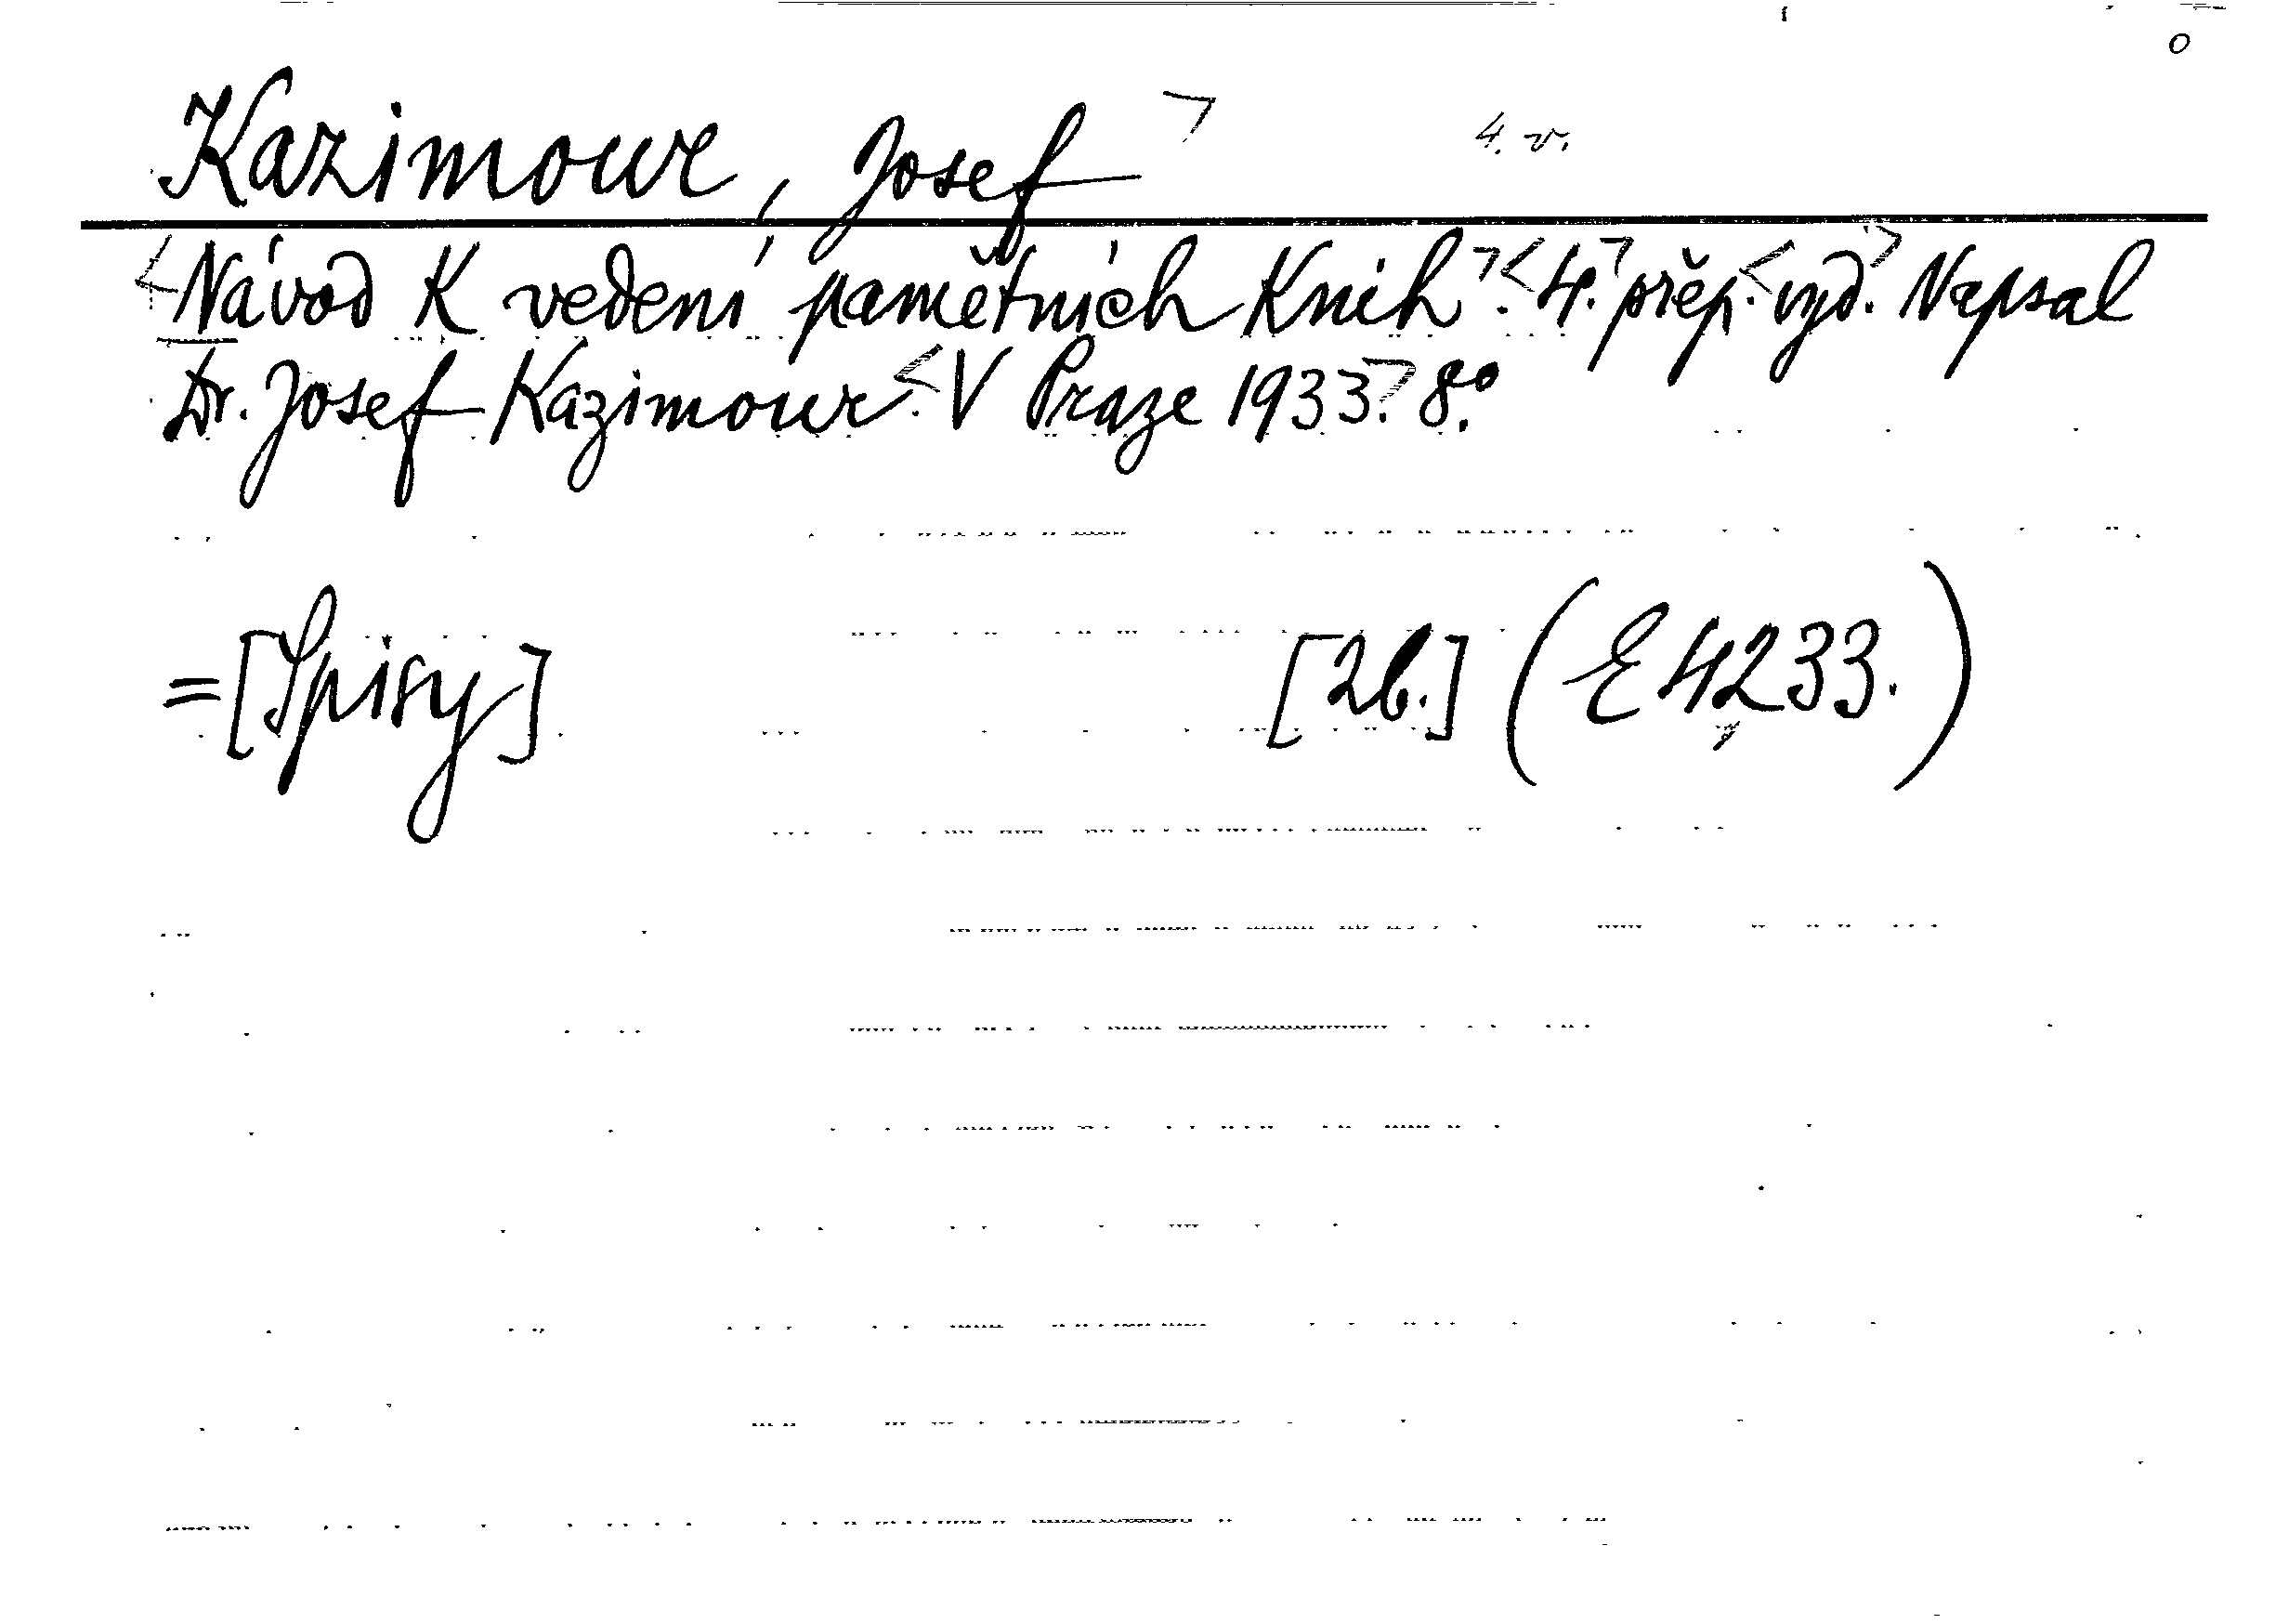 Kazimour, Josef 4. v.
Návod k vedení pamětních knih. 4. přep. vyd. Napsal
Dr. Josef Kazimour. V Praze 1933. 8.°
=[Spisy] [2b.] (E 4233.)